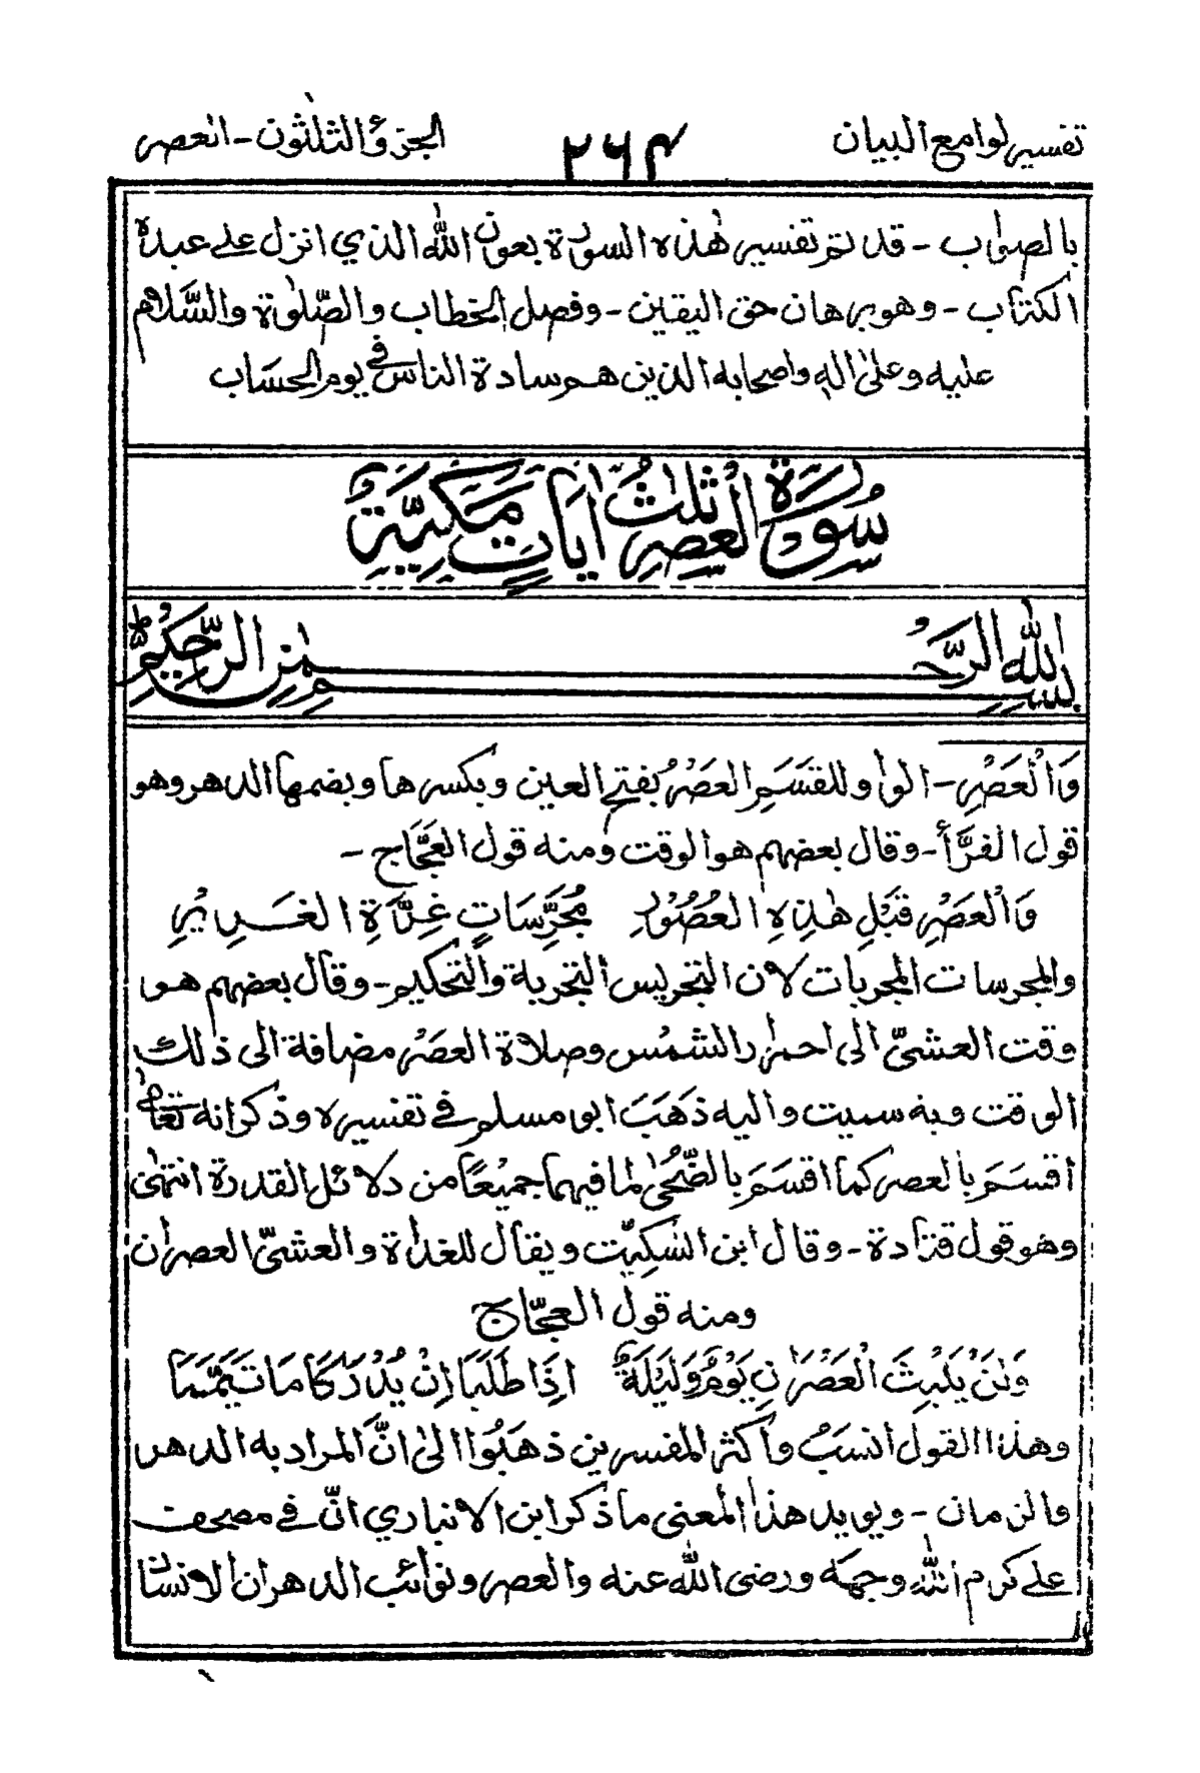 تفسير لوامع البيان ٢٦٤ الجزؤ الثلثون - العصر
بالصواب - قد تم تفسير هٰذه السورة بعون الله الذي انزل على عبده
الكتاب - وهو برهان حق اليقين - وفصل الخطاب والصّلوٰة والسَّلام
عليه وعلىٰ اله واصحابه الذين هم سادة الناس في يوم الحسَاب
سُورَةُ العَصرِ ثلٰثُ اٰيَاتٍ مَكِّيَّةٌ
بِسْمِ اللهِ الرَّحْمٰنِ الرَّحِيْمِ
وَالْعَصْرِ - الواو للقسَمِ العَصْرُ بفتح العين وبكسرها وبضمها الدهر وهو
قول الفرّأ - وقال بعضهم هو الوقت ومنه قول العجّاج -
وَالْعَصْرِ قَبْلِ هٰذِهِ العُصُوْرِ مُجَرِّسَاتٍ غِرَّةِ الغَرِيْرِ
والمجرسات المجربات لان التجريس التجربة والتحكيم - وقال بعضهم هو
وقت العشىّ الى احمرار الشمْس وصلاة العصْر مضافة الى ذٰلك
الوقت وبه سميت واليه ذهَبَ ابو مسلم في تفسيره وذكر انه تعالى
اقسَمَ بالعصر كما اقسَمَ بالضّحىٰ لما فيهما جميْعًا من دلائل القدرة انتهىٰ
وهو قول قتادة - وقال ابن السّكِيّت ويقال للغداة والعشيّ العصران
ومنه قول العجّاج
وَلَنْ يَلْبِثَ الْعَصْرَانِ يَوْمٌ وَلَيْلَةٌ اذَا طَلَبَا اِنْ يُدْرَكَا مَا تَيَمَّمَا
وهذا القول انسَبُ واكثر المفسرين ذهبُوا الىٰ انَّ المراد به الدهر
والزمان - ويويد هذا المعنى ما ذكر ابن الانباري انّ في مصحف
على كرم الله وجهَه ورضى الله عنه والعصر ونوائب الدهر ان الانسٰن